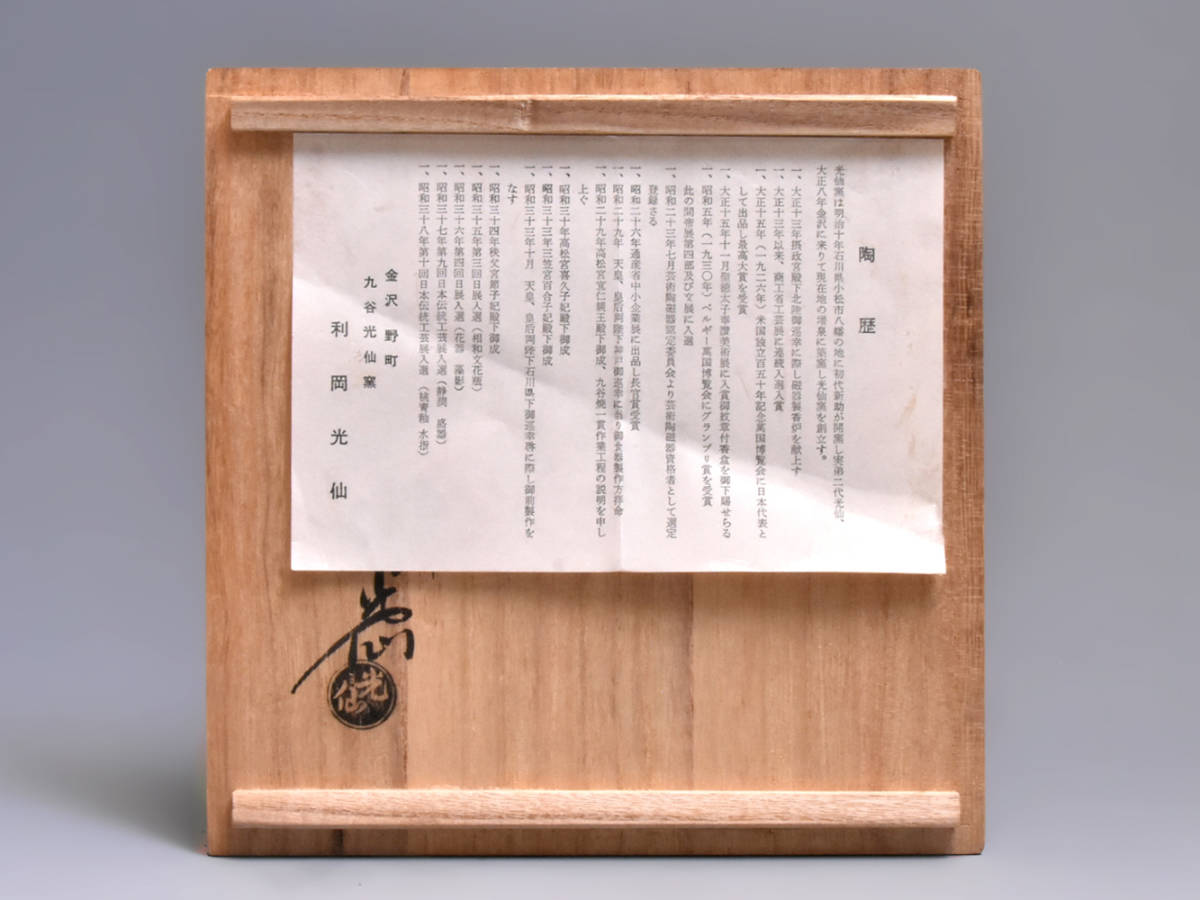 陶歴
光仙窯は明治十年石川県小松市八幡の地に初代新助が開窯し実第二代光仙、
大正八年金沢に来りて現在地の増泉に築窯し光仙窯を創立す。
一、大正十三年摂政宮殿下北陸御巡幸に際し磁器製香炉を献上す
一、大正十三年以来、商工省工芸展に連続入選入賞
一、大正十五年(一九二六年)米国独立百五十年記念萬国博覧会に日本代表と
して出品し最高大賞を受賞
一、大正十五年十一月聖徳太子奉讃美術展に入賞御紋章付香盒を御下賜せらる
一、昭和五年(一九三〇年)ベルギー萬国博覧会にグランプリ賞を受賞
此の間帝展第四部及び文展に入選
一、昭和二十三年七月芸術陶磁器認定委員会より芸術陶磁器資格者として選定
登録さる
一、昭和二十六年通産省中小企業展に出品し長官賞受賞
一、昭和二十九年 天皇、皇后両陛下神戸御巡幸に当り御食器製作方拝命
一、昭和二十九年高松宮宣仁親王殿下御成、九谷焼一貫作業工程の説明を申し
上ぐ
一、昭和三十年高松宮喜久子妃殿下御成
一、昭和三十三年三笠宮百合子妃殿下御成
一、昭和三十三年十月 天皇、皇后両陛下石川県下御巡幸に際し御前製作を
なす
一、昭和三十四年秩父宮節子妃殿下御成
一、昭和三十五年第三回日展入選(相和文花瓶)
一、昭和三十六年第四回日展入選(花器 藻影)
一、昭和三十七年第九回日本伝統工芸展入選(静潤 盛器)
一、昭和三十八年第十回日本伝統工芸展入選(桃青釉 水指)
金沢 野町
九谷光仙窯
利岡光仙
光仙
光仙